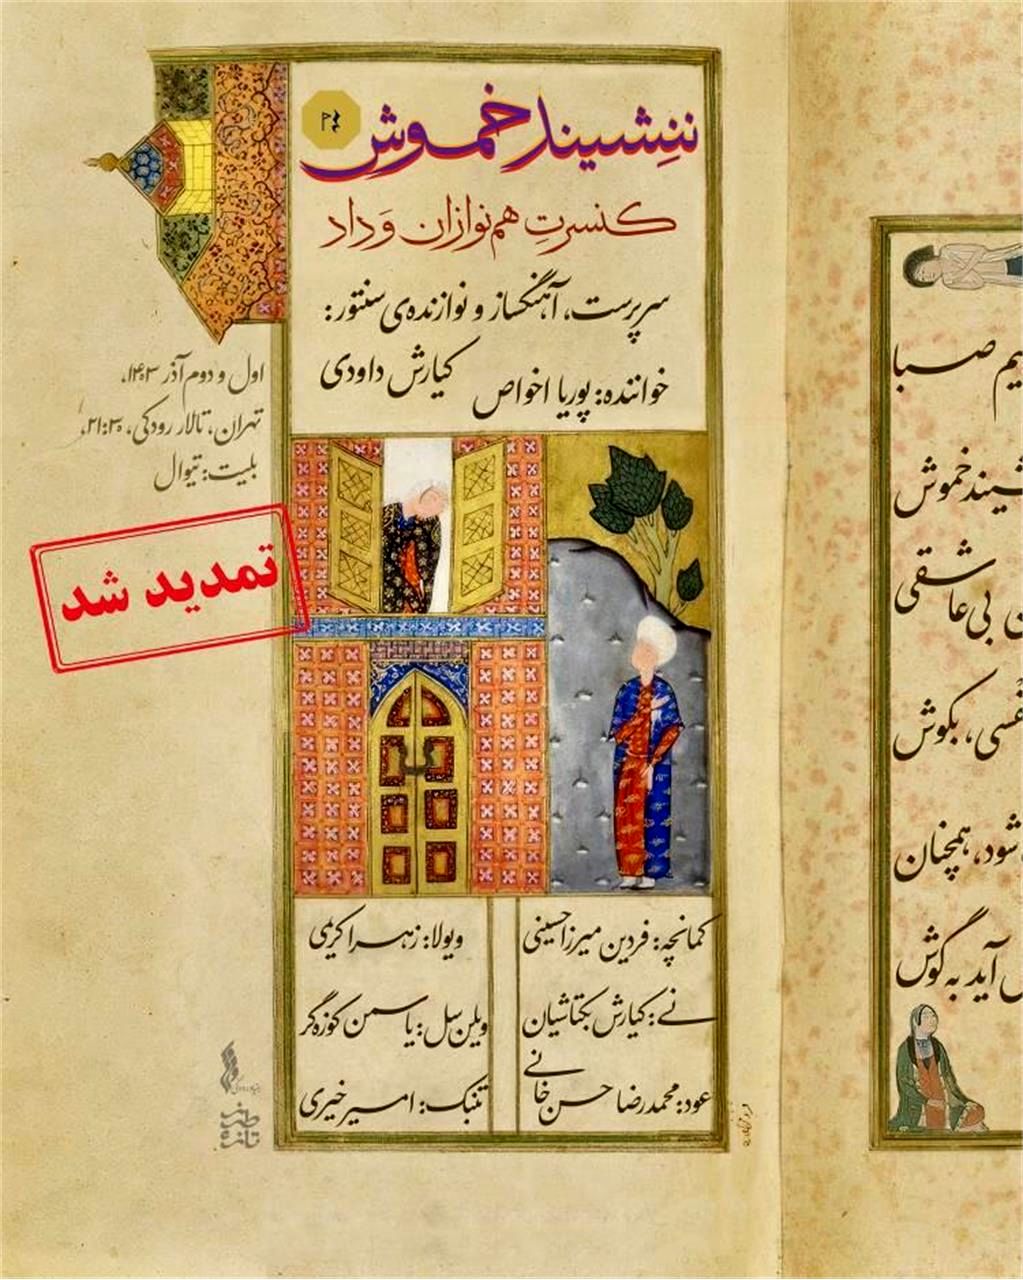 ننِشیند خموش
کنسرتِ هم‌نوازان وَداد
سرپرست، آهنگساز و نوازنده‌ی سنتور:
کیارش داودی
خواننده: پوریا اخواص
اول و دوم آذر ۱۴۰۳،
تهران، تالار رودکی، ۲۱:۳۰،
بلیت: تیوال
تمدید شد
کمانچه: فردین میرزاحسینی
نے: کیارش بکتاشیان
عود: محمدرضا حسن‌خانے
ویولا: زهرا کریمی
ویلن‌سل: یاسمن کوزه‌گر
تنبک: امیر خیری
بنیاد رودکی
طرز تازه
صبا
خموش
بی‌عاشقی
بکوش
شود، همچنان
آید به گوش